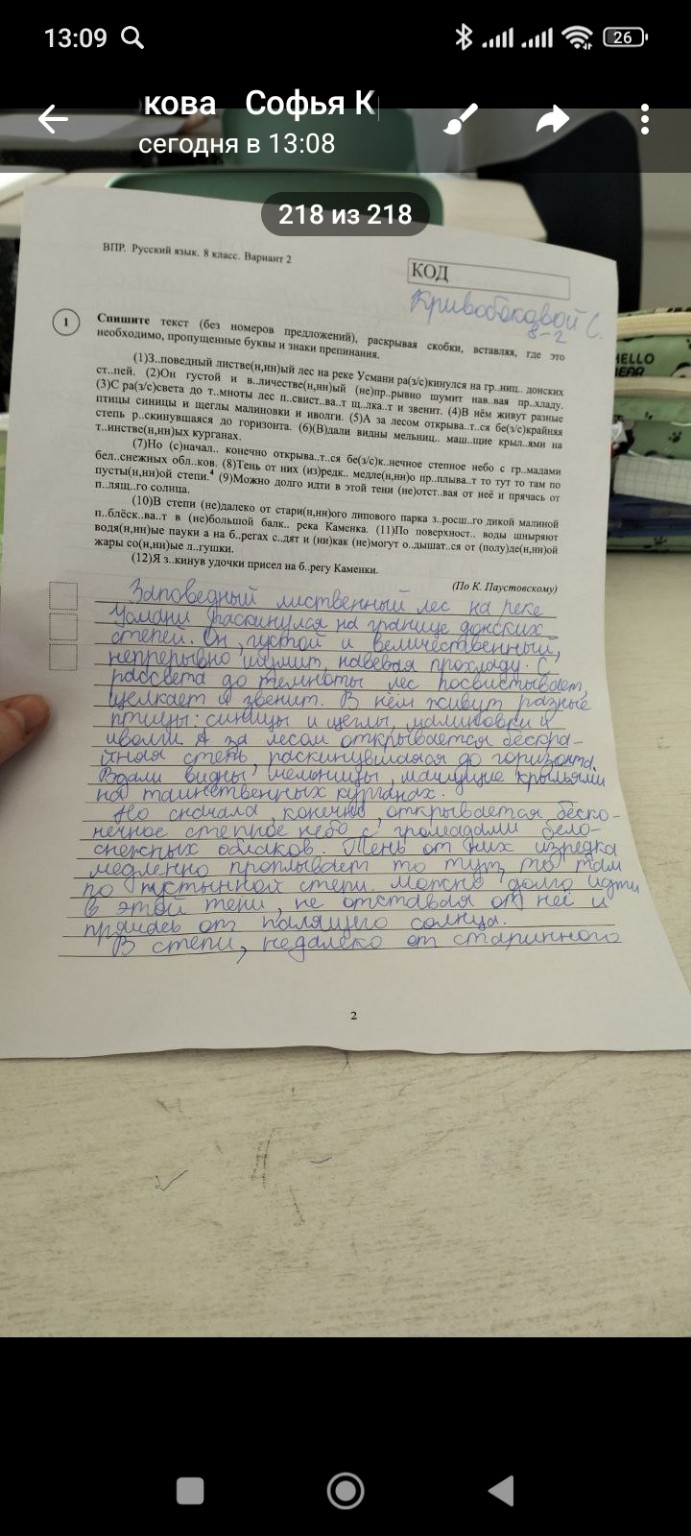 13:09
26
кова Софья К
сегодня в 13:08
218 из 218
ВПР. Русский язык. 8 класс. Вариант 2
КОД
Кривобоковой С.
8-2
HELLO
BEAR
1
Спишите текст (без номеров предложений), раскрывая скобки, вставляя, где это
необходимо, пропущенные буквы и знаки препинания.
(1)З..поведный листве(н,нн)ый лес на реке Усмани ра(з/с)кинулся на гр..ниц.. донских
ст..пей. (2)Он густой и в..личестве(н,нн)ый (не)пр..рывно шумит нав..вая пр..хладу.
(3)С ра(з/с)света до т..мноты лес п..свист..ва..т щ..лка..т и звенит. (4)В нём живут разные
птицы синицы и щеглы малиновки и иволги. (5)А за лесом открыва..т..ся бе(з/с)крайняя
степь р..скинувшаяся до горизонта. (6)(В)дали видны мельниц.. маш..щие крыл..ями на
т..инстве(н,нн)ых курганах.
(7)Но (с)начал.. конечно открыва..т..ся бе(з/с)к..нечное степное небо с гр..мадами
бел..снежных обл..ков. (8)Тень от них (из)редк.. медле(н,нн)о пр..плыва..т то тут то там по
пусты(н,нн)ой степи.4 (9)Можно долго идти в этой тени (не)отст..вая от неё и прячась от
п..лящ..го солнца.
(10)В степи (не)далеко от стари(н,нн)ого липового парка з..росш..го дикой малиной
п..блёск..ва..т в (не)большой балк.. река Каменка. (11)По поверхност.. воды шныряют
водя(н,нн)ые пауки а на б..регах с..дят и (ни)как (не)могут о..дышат..ся от (полу)де(н,нн)ой
жары со(н,нн)ые л..гушки.
(12)Я з..кинув удочки присел на б..регу Каменки.
(По К. Паустовскому)
Заповедный лиственный лес на реке
Усмани раскинулся на границе донских
степей. Он, густой и величественный,
непрерывно шумит, навевая прохладу. С
рассвета до темноты лес посвистывает,
щелкает и звенит. В нём живут разные
птицы: синицы и щеглы, малиновки и
иволги. А за лесом открывается бескра-
йная степь, раскинувшаяся до горизонта.
Вдали видны мельницы, машущие крыльями
на таинственных курганах.
Но сначала, конечно, открывается беско-
нечное степное небо с громадами бело-
снежных облаков. Тень от них изредка
медленно проплывает то тут, то там
по пустынной степи. Можно долго идти
в этой тени, не отставая от неё и
прячась от палящего солнца.
В степи, недалеко от старинного
2